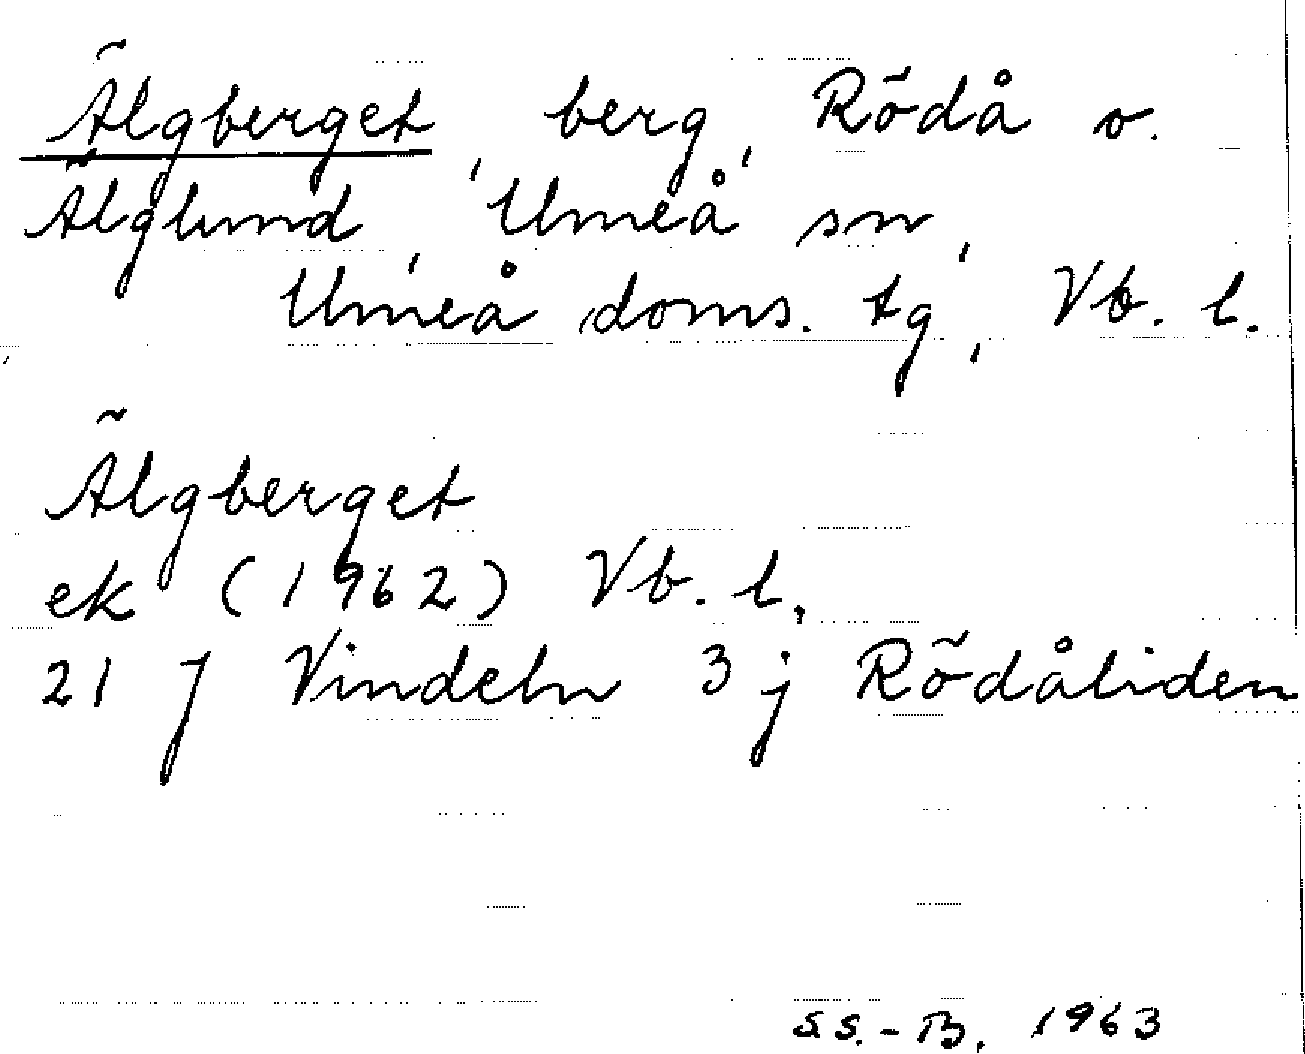 Älgberget, berg, Rödå o.
Älglund, Umeå sn,
Umeå doms. tg, Vb. l.
Älgberget
ek (1962) Vb. l.
21 J Vindeln 3 j Rödåliden
S.S.-B. 1963